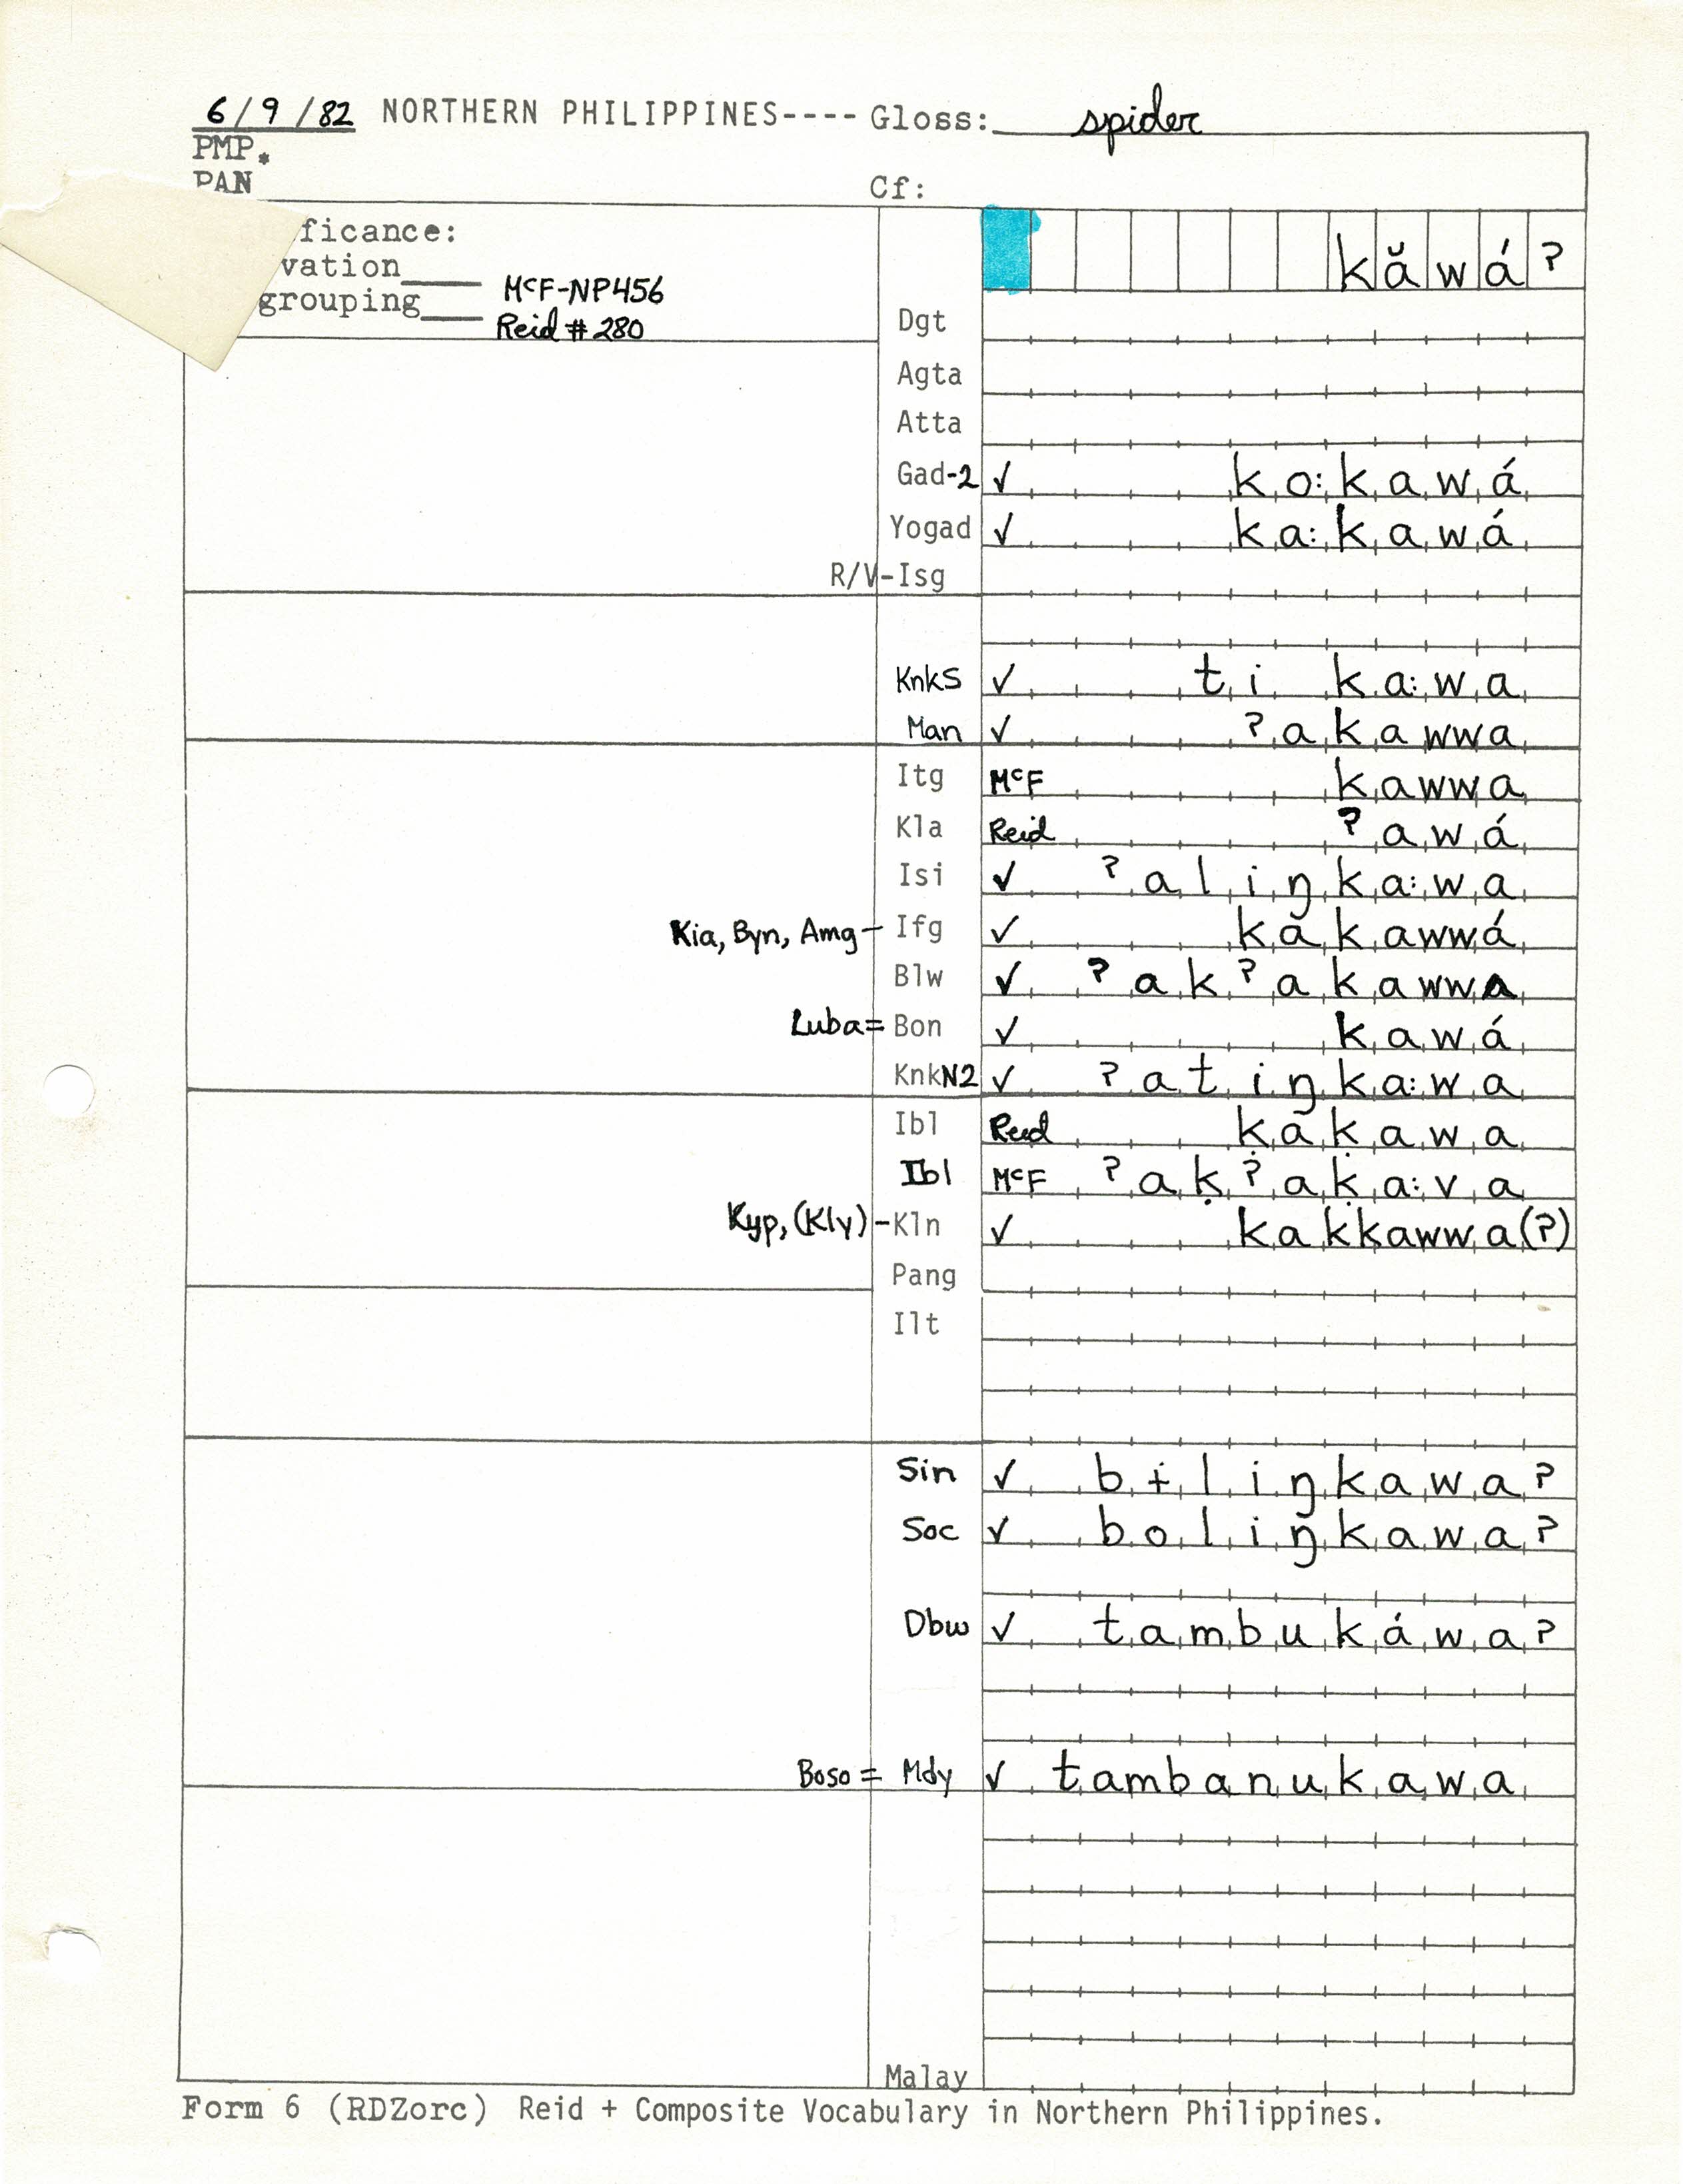 6/9/82 NORTHERN PHILIPPINES---- Gloss: spider
PMP*
PAN Cf:
ficance:
vation____ McF-NP456
grouping____ Reid # 280
kăwáʔ
Dgt
Agta
Atta
Gad-2 ✓ ko:kawá
Yogad ✓ ka:kawá
R/V-Isg
KnkS ✓ ti ka:wa
Man ✓ ʔakawwa
Itg McF kawwa
Kla Reid ʔawá
Isi ✓ ʔaliŋka:wa
Kia, Byn, Amg - Ifg ✓ kăkawwá
Blw ✓ ʔakʔakawwa
Luba = Bon ✓ kawá
KnkN2 ✓ ʔatiŋka:wa
Ibl Reid ḳăḳawa
Ibl McF ʔaḳʔaḳa:va
Kyp, (Kly) - Kln ✓ kakkawwa(ʔ)
Pang
Ilt
Sin ✓ bɨliŋkawaʔ
Soc ✓ boliŋkawaʔ
Dbw ✓ tambukáwaʔ
Boso = Mdy ✓ tambanukawa
Malay
Form 6 (RDZorc) Reid + Composite Vocabulary in Northern Philippines.